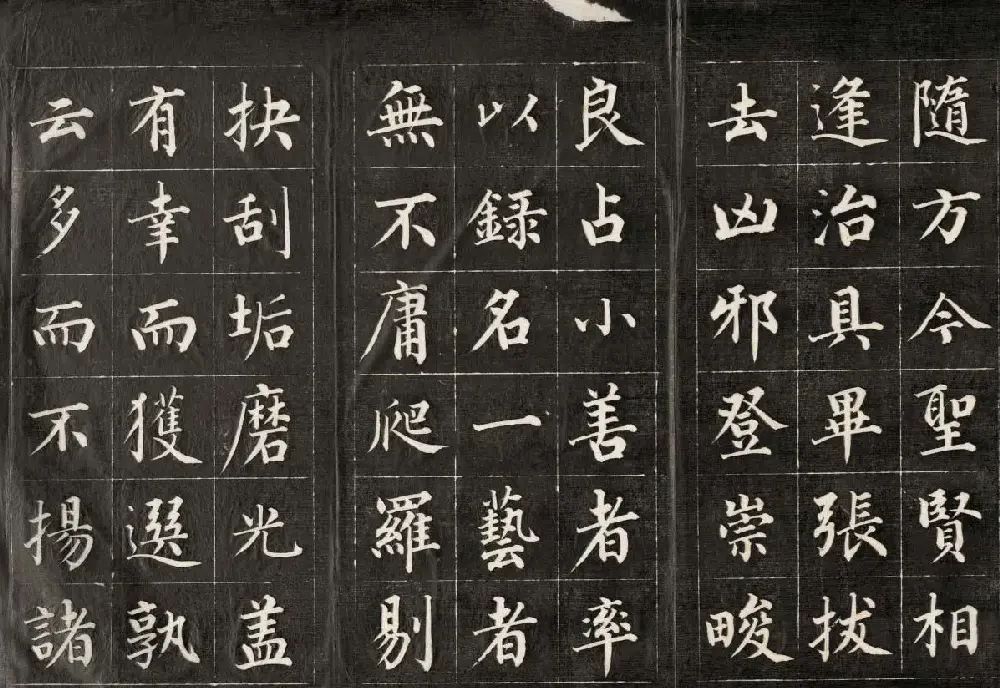 隨方今聖賢相
逢治具畢張拔
去凶邪登崇畯
良占小善者率
以録名一藝者
無不庸爬羅剔
抉刮垢磨光盖
有幸而獲選孰
云多而不揚諸